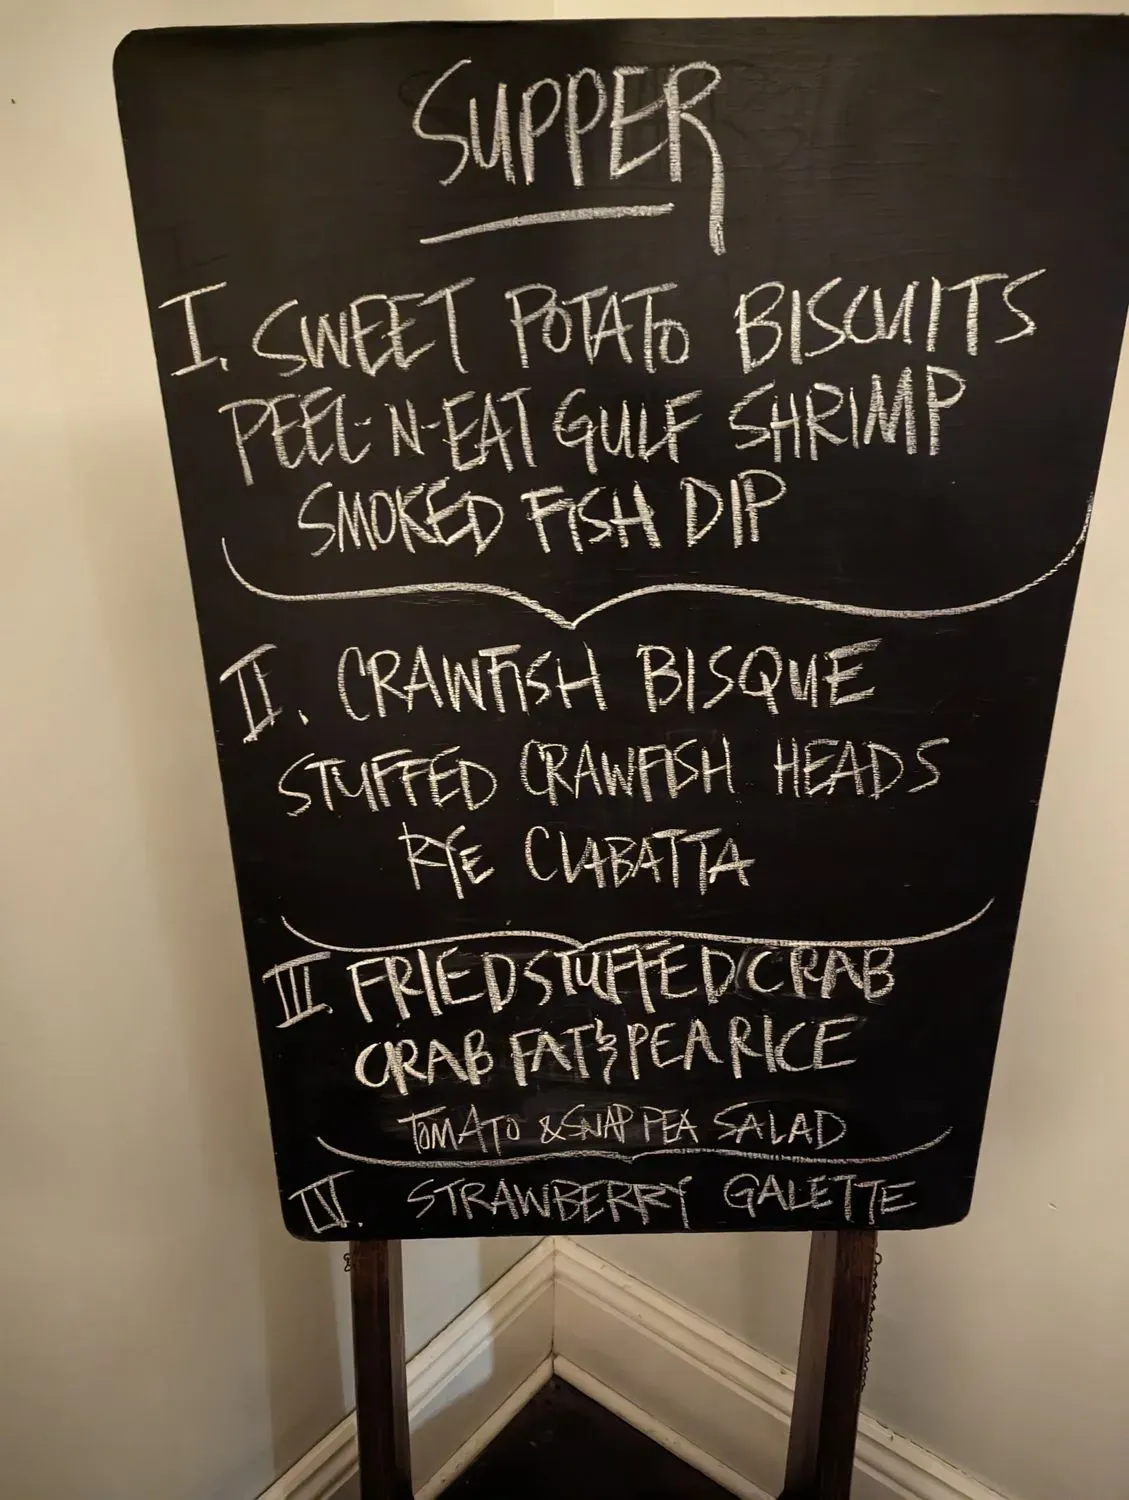 SUPPER
I. SWEET POTATO BISCUITS
PEEL-N-EAT GULF SHRIMP
SMOKED FISH DIP
II. CRAWFISH BISQUE
STUFFED CRAWFISH HEADS
RYE CIABATTA
III. FRIED STUFFED CRAB
CRAB FAT & PEA RICE
TOMATO & SNAP PEA SALAD
IV. STRAWBERRY GALETTE